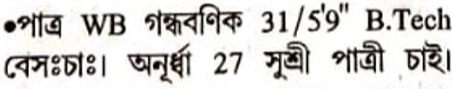 ●পাত্র WB গন্ধবণিক 31/5'9" B.Tech
বেসঃচাঃ। অনূর্ধ্বা 27 সুশ্রী পাত্রী চাই।